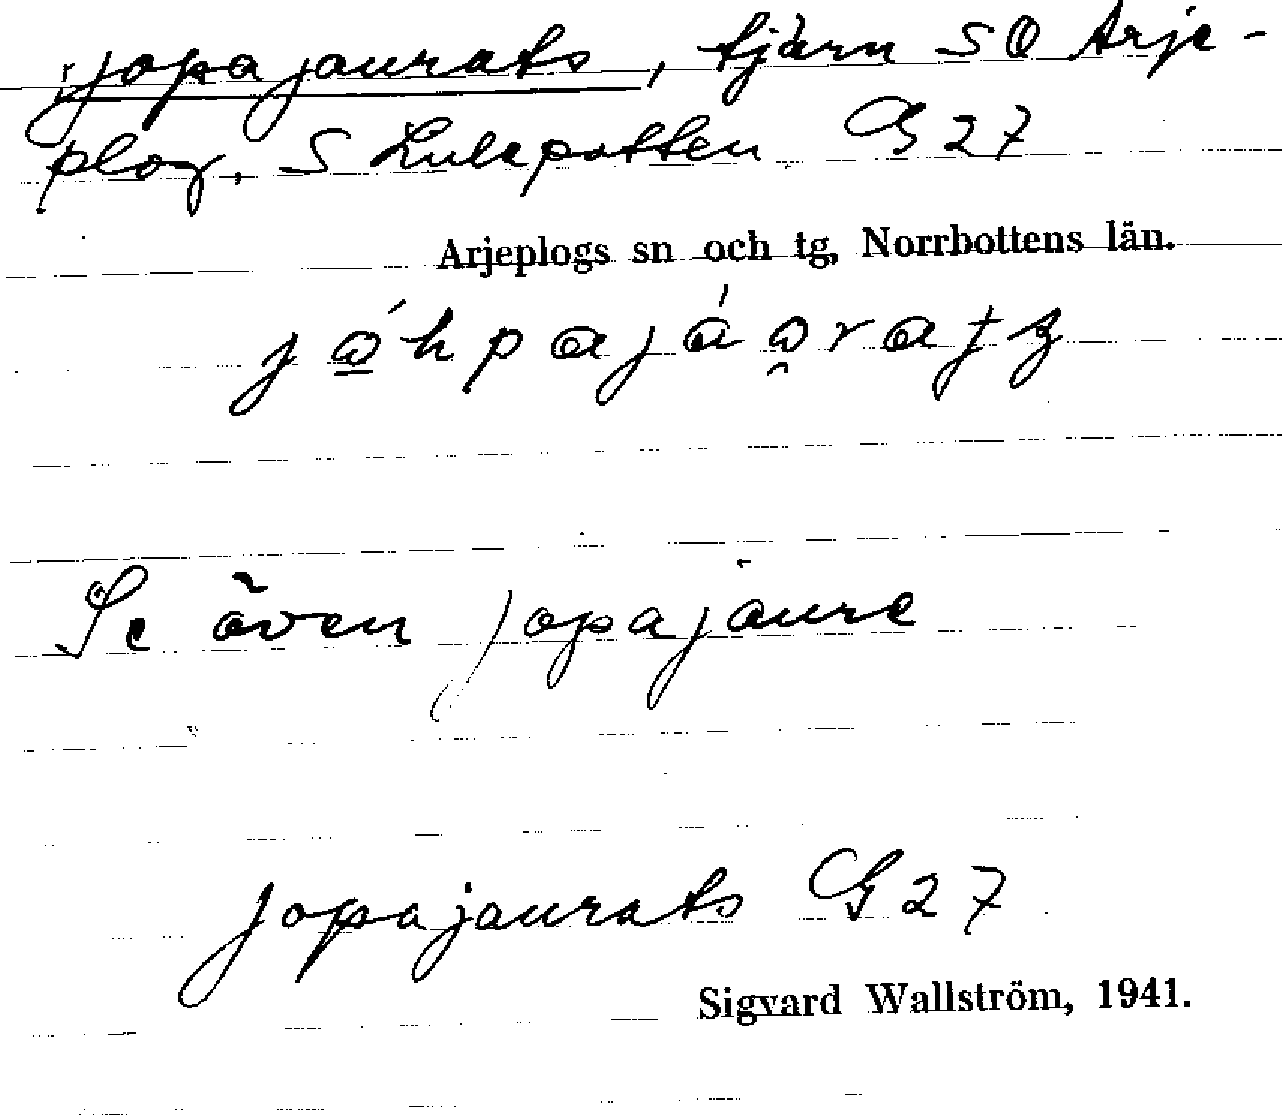 Jopajaurats, tjärn SO Arje-
plog, S Lulepotten G 27
Arjeplogs sn och tg, Norrbottens län.
Se även Jopajaure
Jopajaurats G 27
Sigvard Wallström, 1941.